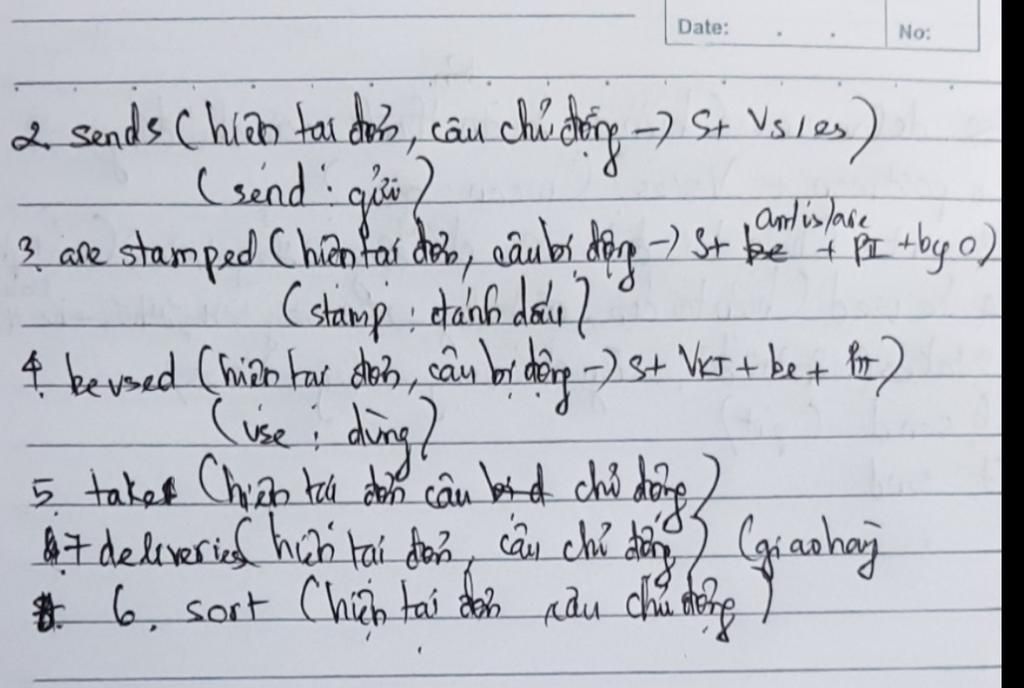 Date: . . No:
2. sends (hiện tại đơn, câu chủ động → S + Vs/es)
(send : gửi)
am/is/are
3. are stamped (hiện tại đơn, câu bị động → S + be + PII + by O)
(stamp : đánh dấu)
4 be used (hiện tại đơn, câu bị động → S + VKT + be + PII)
(use : dùng)
5. take (hiện tại đơn câu chủ động)
7 deliveries (hiện tại đơn, câu chủ động) (giao hàg
6. sort (hiện tại đơn câu chủ động)